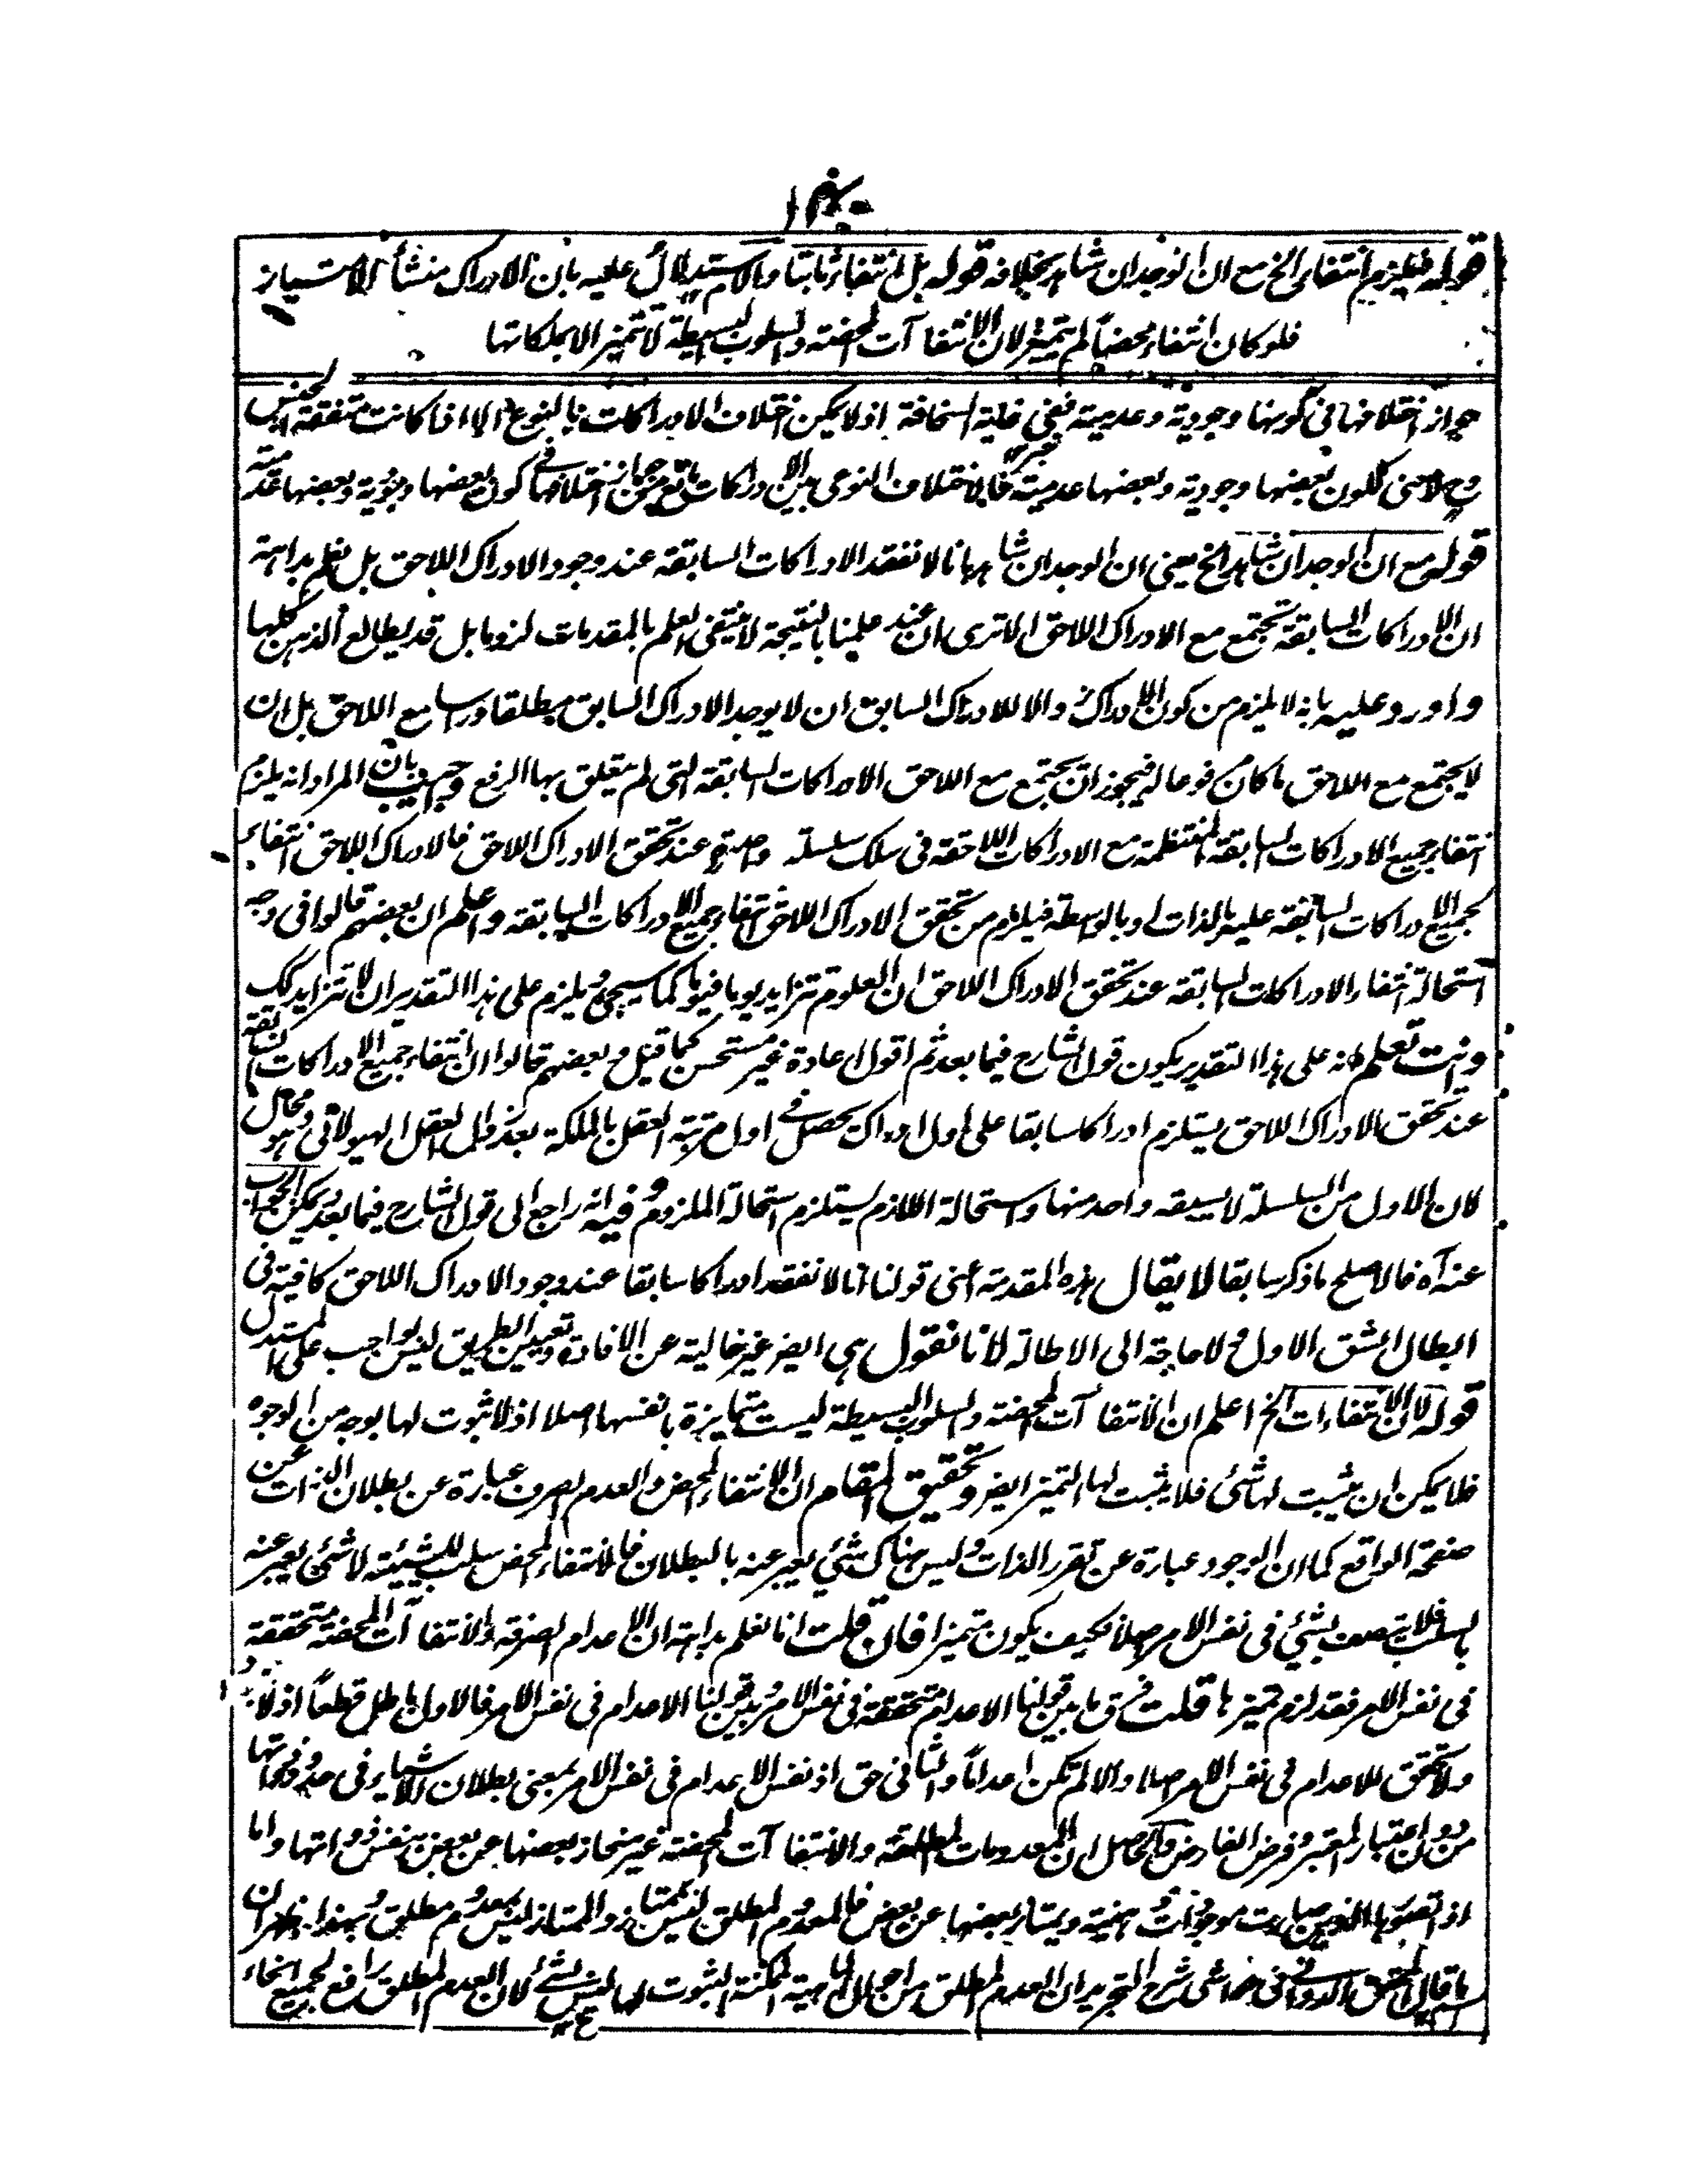 قوله فيلزم انتفاء الخ مع ان الوجدان شاهد بخلافه قوله بل انتفاء ثابتا والاستدلال عليه بان الادراك منشأ الامتياز
فلو كان انتفاء محضا لم يتميز لان الانتفاآت المحضة والسلوب البسيطة لا تتميز الا بملكاتها
جواز اختلافها في كونها وجودية وعدمية ففي غاية السخافة اذ لا يمكن اختلاف الادراكات بالنوع الا اذا كانت متفقة الجنس
وح لا معنى لكون بعضها وجودية وبعضها عدمية فالاختلاف النوعي بين الادراكات مانع عن جواز اختلافها في كون بعضها وجودية وبعضها عدمية
قوله مع ان الوجدان شاهد الخ يعني ان الوجدان شاهد بانا لا نفقد الادراكات السابقة عند وجود الادراك اللاحق بل نعلم بداهة
ان الادراكات السابقة تجتمع مع الادراك اللاحق الا ترى ان عند علمنا بالنتيجة لا ينتفي العلم بالمقدمات لزوما بل قد يطالع الذهن كلها
واورد عليه بانه لا يلزم من كون الادراك زوالا للادراك السابق ان لا يوجد الادراك السابق مطلقا وراسا مع اللاحق بل ان
لا يجتمع مع اللاحق ما كان مرفوعا له فيجوز ان يجتمع مع اللاحق الادراكات السابقة التي لم يتعلق بها الرفع واجيب بان المراد انه يلزم
انتفاء جميع الادراكات السابقة المنتظمة مع الادراكات اللاحقة في سلك سلسلة واحدة عند تحقق الادراك اللاحق فالادراك اللاحق انتفاء
لجميع الادراكات السابقة عليه بالذات او بالواسطة فيلزم من تحقق الادراك اللاحق انتفاء جميع الادراكات السابقة واعلم ان بعضهم قالوا في وجه
استحالة انتفاء الادراكات السابقة عند تحقق الادراك اللاحق ان العلوم تتزايد يوما فيوما كما سيجئ ويلزم على هذا التقدير ان لا تتزايد كك
وانت تعلم انه على هذا التقدير يكون قول الشارح فيما بعد ثم اقول اعادة غير مستحسن كما قيل وبعضهم قالوا ان انتفاء جميع الادراكات السابقة
عند تحقق الادراك اللاحق يستلزم ادراكا سابقا على اول ادراك يحصل في اول مرتبة العقل بالملكة بعد زوال العقل الهيولاني وهو محال
لان الاول من السلسلة لا يسبقه واحد منها واستحالة اللازم يستلزم استحالة الملزوم وفيه انه راجع الى قول الشارح فيما بعد يمكن الجواب
عنه آه فالاصلح ما ذكر سابقا لا يقال هذه المقدمة اعنى قولنا انا لا نفقد ادراكا سابقا عند وجود الادراك اللاحق كافية في
ابطال الشق الاول ولا حاجة الى الاطالة لانا نقول هي ايضا غير خالية عن الافادة وتعيين الطريق ليس بواجب على المستدل
قوله لان الانتفاءات الخ اعلم ان الانتفاآت المحضة والسلوب البسيطة ليست متمايزة بانفسها اصلا اذ لا ثبوت لها بوجه من الوجوه
فلا يمكن ان يثبت لها شئ فلا يثبت لها التميز ايضا وتحقيق المقام ان الانتفاء المحض والعدم الصرف عبارة عن بطلان الذات عن
صفحة الواقع كما ان الوجود عبارة عن تقرر الذات وليس هناك شئ يعبر عنه بالبطلان فالانتفاء المحض سلب للشيئية لا شئ يعبر عنه
بالسلب فلا يتصف بشئ في نفس الامر اصلا فكيف يكون متميزا فان قلت انا نعلم بداهة ان الاعدام الصرفة والانتفاآت المحضة متحققة
في نفس الامر فقد لزم تميزها قلت فرق ما بين قولنا الاعدام متحققة في نفس الامر وبين قولنا الاعدام في نفس الامر فالاول باطل قطعا اذ لا
ولا تحقق للاعدام في نفس الامر اصلا والا لم تكن اعداما والثاني حق اذ نفس الاعدام في نفس الامر بمعنى بطلان الاشياء في حدود ذواتها
من دون اعتبار المعتبر وفرض الفارض والحاصل ان المعدومات المطلقة والانتفاآت المحضة غير منحاز بعضها عن بعض بنفس ذواتها واما
اذا تصورها الذهن صارت موجودات ذهنية ويمتاز بعضها عن بعض فالمعدوم المطلق ليس بممتاز والممتاز ليس بمعدوم مطلق وبهذا ظهر ان
ما قال المحقق الدواني في حواشي شرح التجريد ان العدم المطلق من احوال الماهية الممكنة الثبوت لها ليس بشئ لان العدم المطلق رافع لجميع انحاء